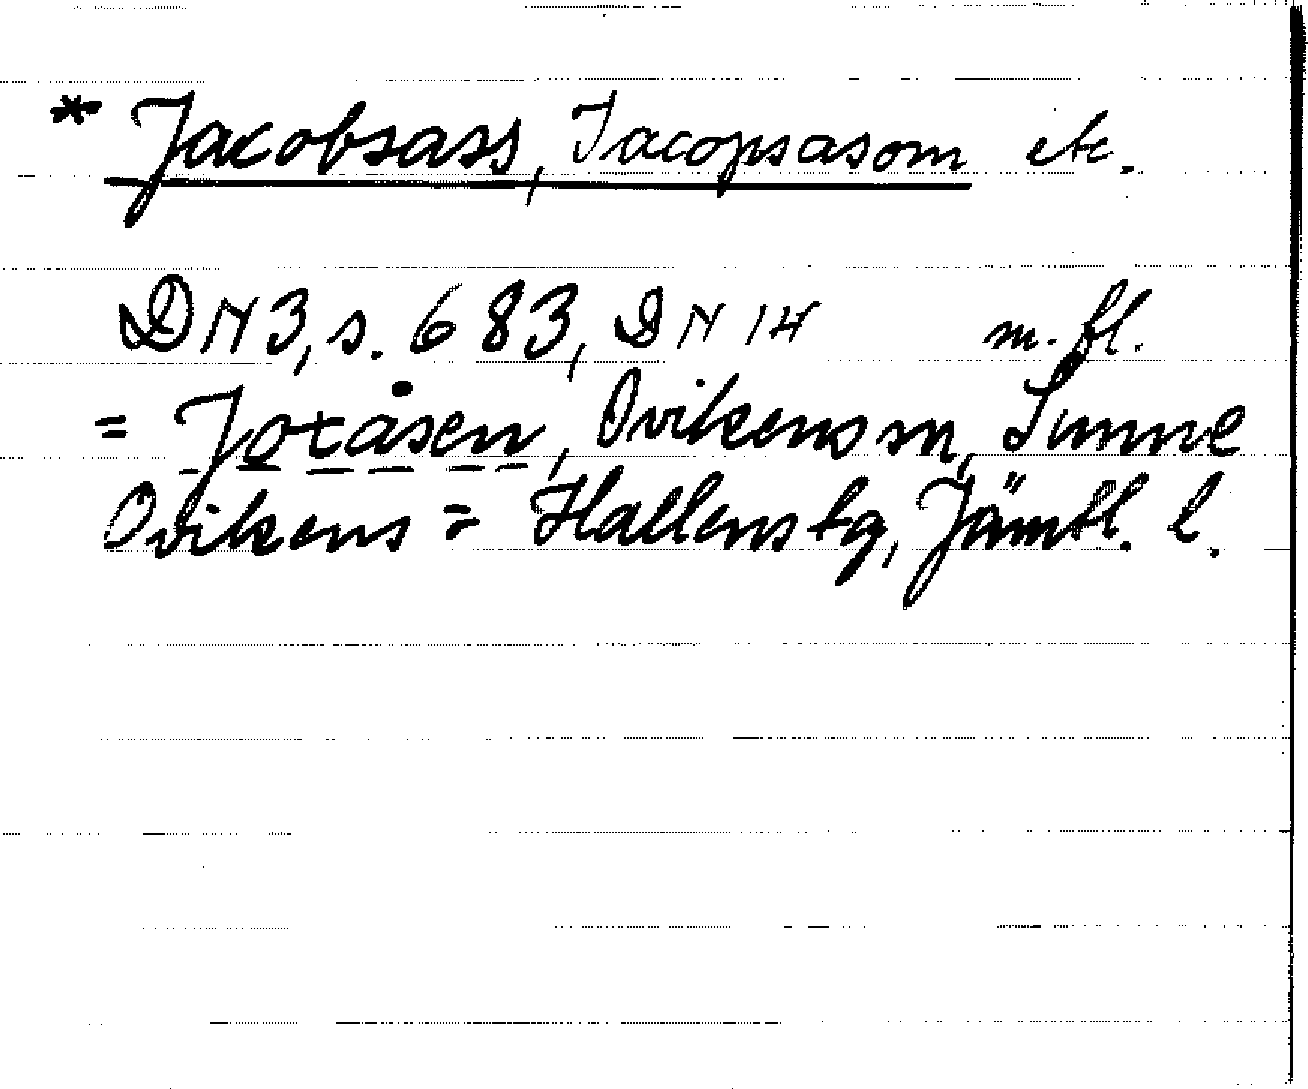 * Jacobsass, Jacopsasom etc.
DN 3, s. 683, DN 14 m. fl.
= Jotåsen, Ovikens sn, Sunne
Ovikens = Hallens tg, Jämtl. l.